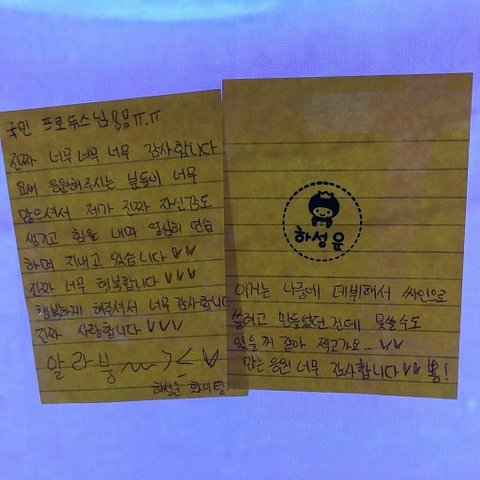 국민 프로듀스님 ㅠ.ㅠ
진짜 너무 너무 너무 감사합니다
요새 응원해주시는 분들이 너무
많으셔서 제가 진짜 자신감도
생기고 힘을 내며 열심히 연습
하며 지내고 있습니다 ♡♡
진짜 너무 행복합니다 ♡♡♡
행복하게 해주셔서 너무 감사합니다
진짜 사랑합니다 ♡♡♡
알라븅~~ >< ♡
하성운 화이팅!
하성운
이거는 나중에 데뷔해서 싸인으로
쓸려고 만들었던 건데 못쓸수도
있을꺼 같아 찍고가요... ♡♡
많은 응원 너무 감사합니다 ♡♡ 뿅!